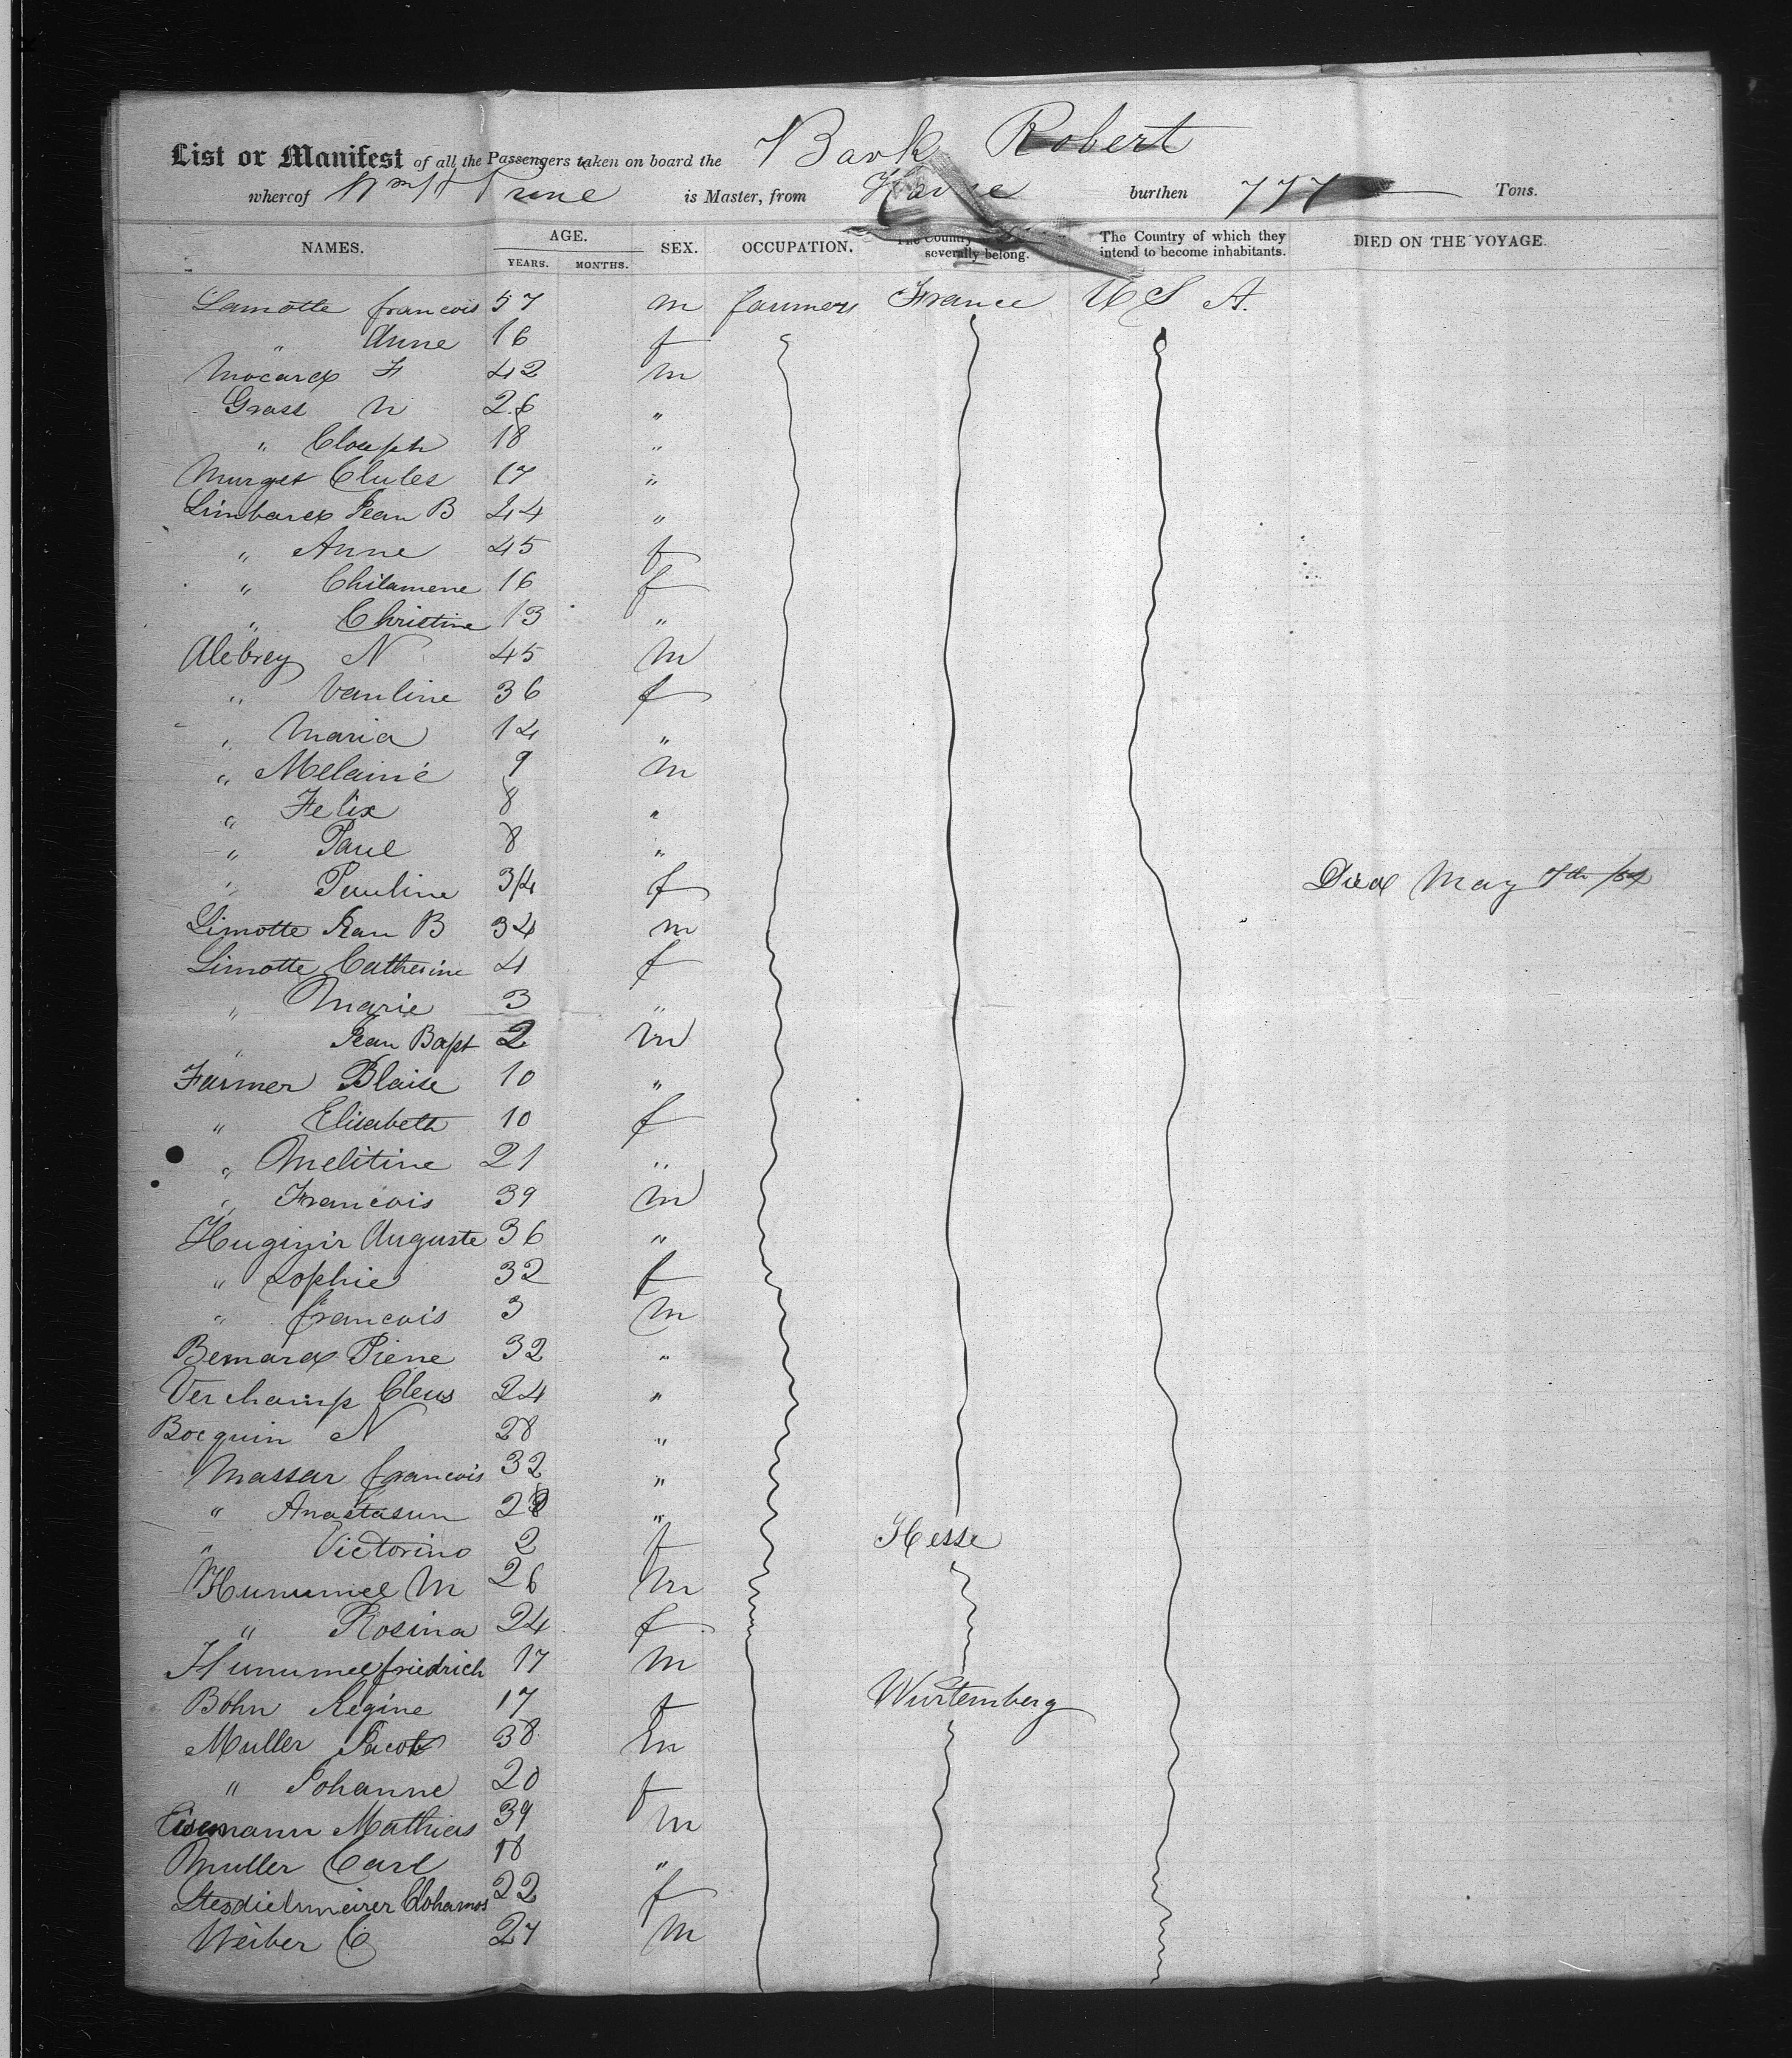 List or Manifest of all the Passengers taken on board the Bark Robert
whereof Wm H Prine is Master, from Havre burthen 777 Tons.
NAMES. AGE. YEARS. MONTHS. SEX. OCCUPATION. The Country severally belong. The Country of which they intend to become inhabitants. DIED ON THE VOYAGE.
Lamotte francois 57 m farmers France U S A.
" Anne 16 f
Mocard F 42 m
Grass N 26 "
" Closeph 18 "
Murget Clules 17 "
Limbard Jean B 44 "
" Anne 45 f
" Chilamene 16 f
" Christine 13 "
Alebrey N 45 m
" Vauline 36 f
" Maria 14 "
" Melainé 9 m
" Felix 8 "
" Paul 8 "
" Pauline 3/4 f Died May 7th /54
Limotte Jean B 34 m
Limotte Catherine 4 f
" Marie 3 "
" Jean Bapt 2 m
Farmer Blaise 10 "
" Elisabeth 10 f
" Melitine 21 "
" Francois 39 m
Huginir Auguste 36 "
" Sophie 32 f
" francois 3 m
Bemard Piene 32 "
Verchamp Cleus 24 "
Bocquin N 28 "
Massar francois 32 "
" Anastasun 28 "
" Victorino 2 f Hesse
Hummel M 26 m
" Rosina 24 f
Hummel friedrich 17 m
Bohn Regine 17 f Wurtemberg
Muller Jacob 38 m
" Johanne 20 f
Eisemann Mathias 39 m
Muller Carl 18 "
Clohamos 22 f
Weiber C 27 m